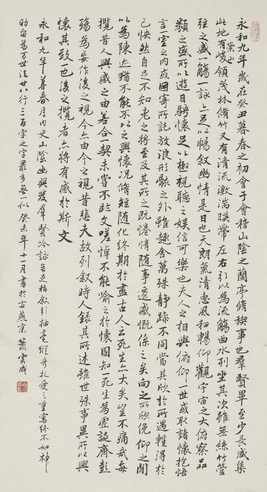 永和九年歲在癸丑暮春之初會于會稽山陰之蘭亭脩稧事也羣賢畢至少長咸集
此地有崇山峻領茂林脩竹又有清流激湍暎帶左右引以為流觴曲水列坐其次雖無絲竹管
弦之盛一觴一詠亦足以暢叙幽情是日也天朗氣清惠風和暢仰觀宇宙之大俯察品
類之盛所以遊目騁懷足以極視聽之娛信可樂也夫人之相與俯仰一世或取諸懷抱悟
言一室之內或因寄所託放浪形骸之外雖趣舍萬殊靜躁不同當其欣於所遇暫得於
己快然自足不知老之將至及其所之既惓情隨事遷感慨係之矣向之所欣俛仰之間
以為陳迹猶不能不以之興懷況脩短隨化終期於盡古人云死生亦大矣豈不痛哉每
攬昔人興感之由若合一契未嘗不臨文嗟悼不能喻之於懷固知一死生為虛誕齊彭
殤為妄作後之視今亦由今之視昔悲夫故列叙時人錄其所述雖世殊事異所以興
懷其致一也後之攬者亦將有感於斯文
永和九年暮春月內史山陰幽興發羣賢吟詠無足稱叙引抽毫縱奇札愛之重寫終不如神
助留為万世法廿八行三百字之字最多無一似 癸未年十一月書於古燕京 蕭雲